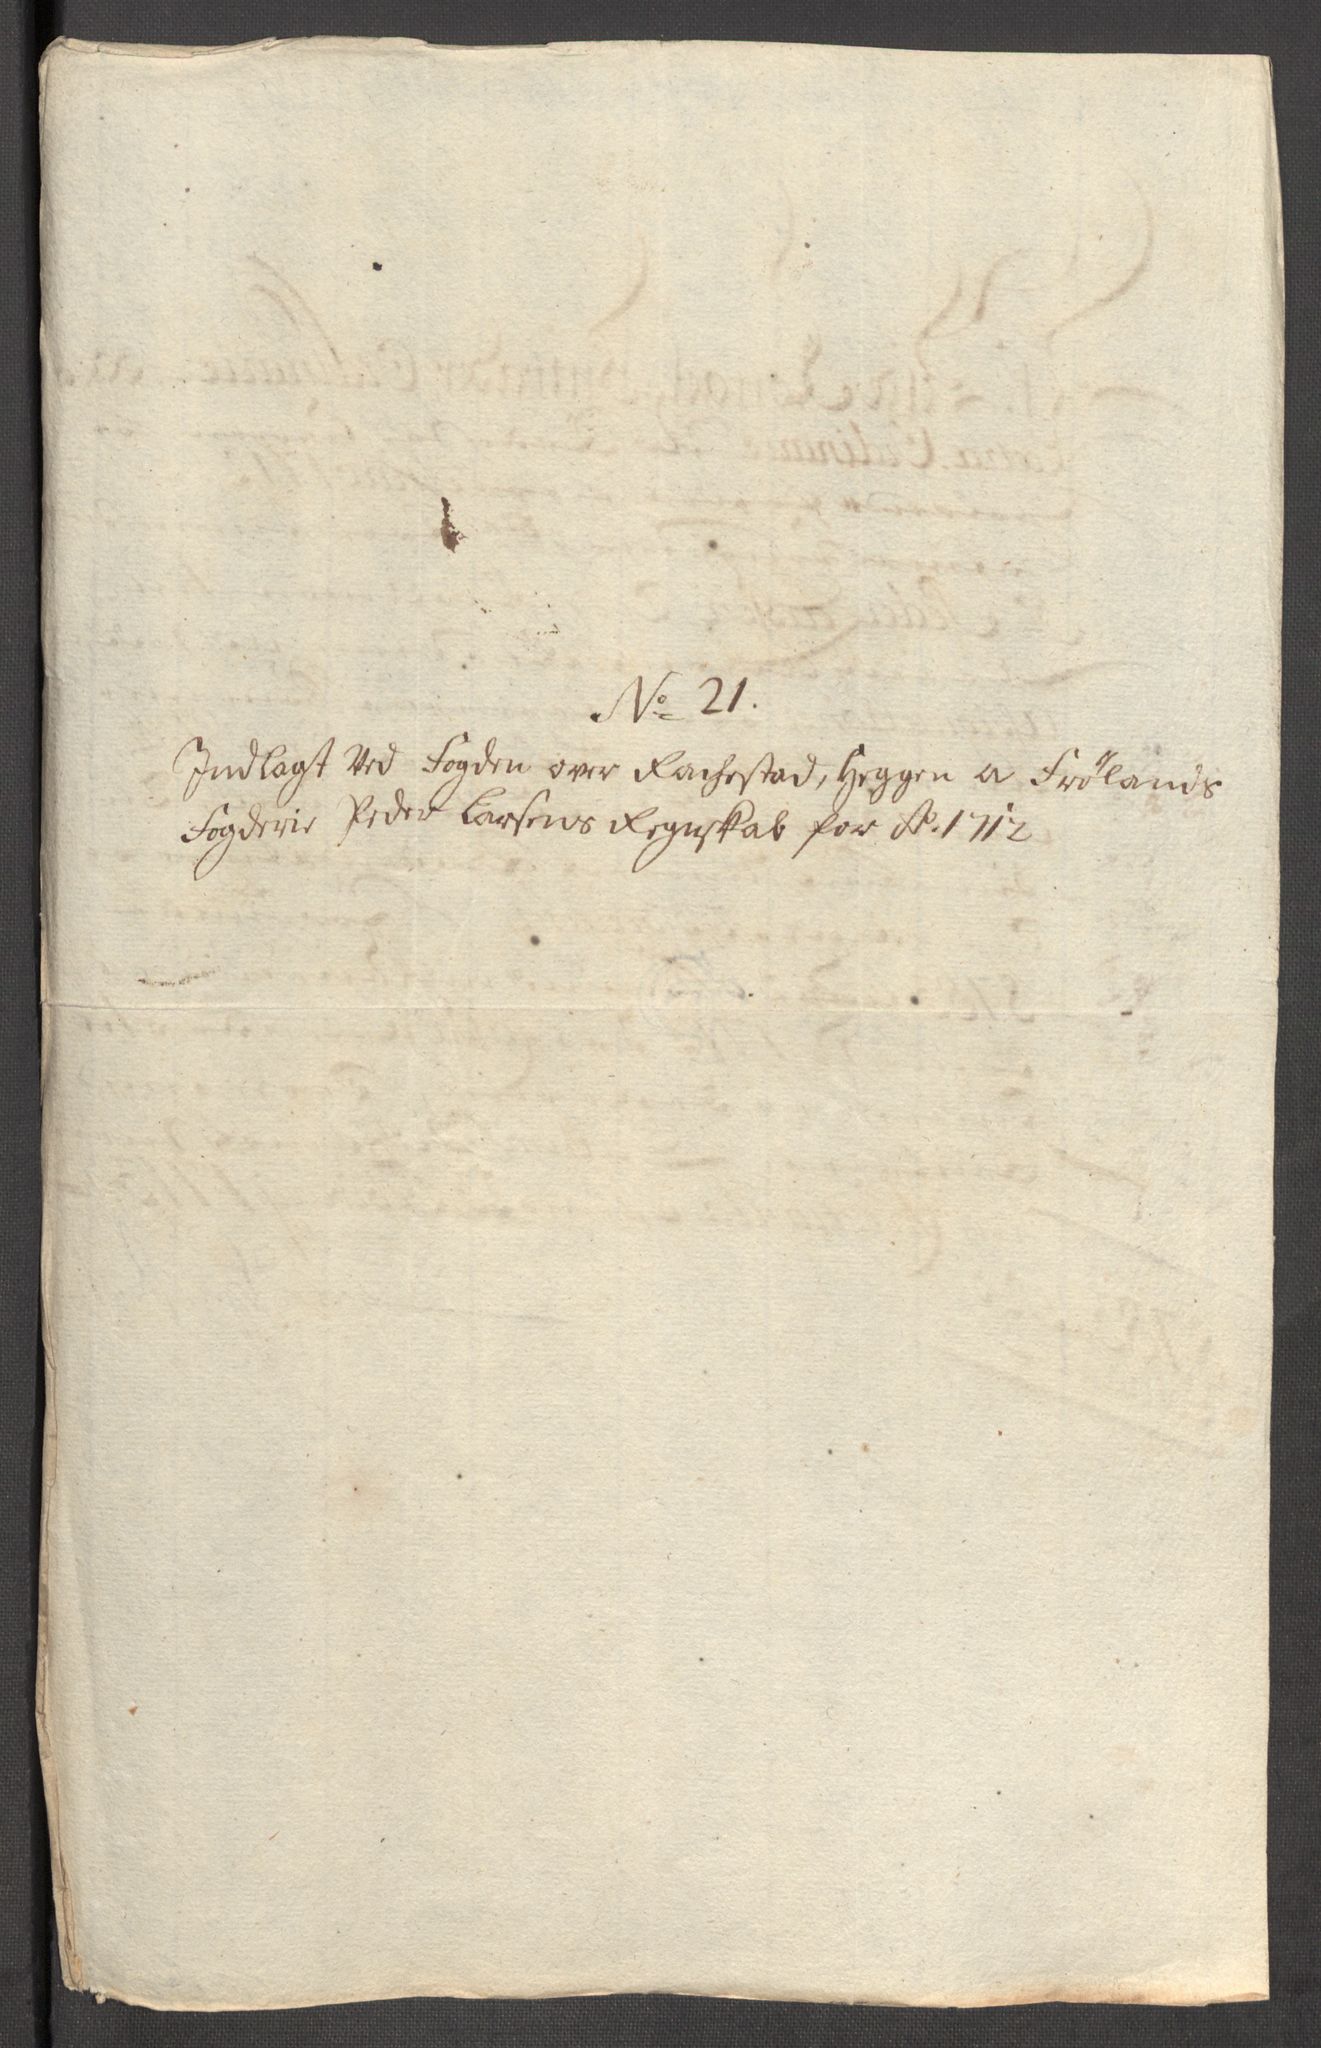 No 21.
Indlagt Ved Fogden over Rachestad, Heggen a Frölands
Fogderie Peder Larsens Regnskab for Ao. 1712